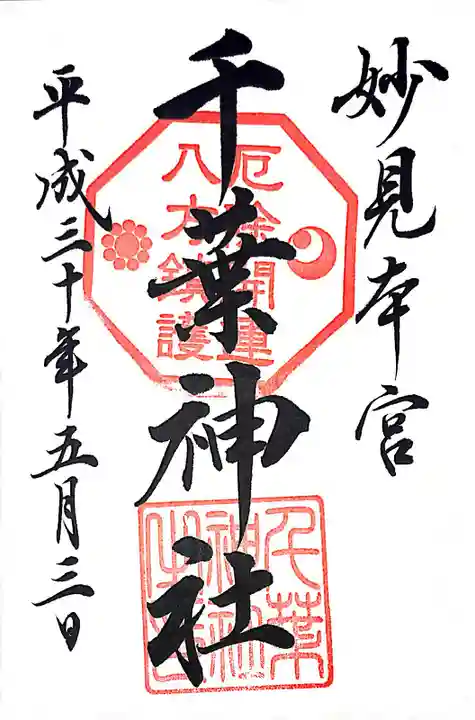 妙見本宮
千葉神社
平成三十年五月三日
厄除開運
八方鎮護